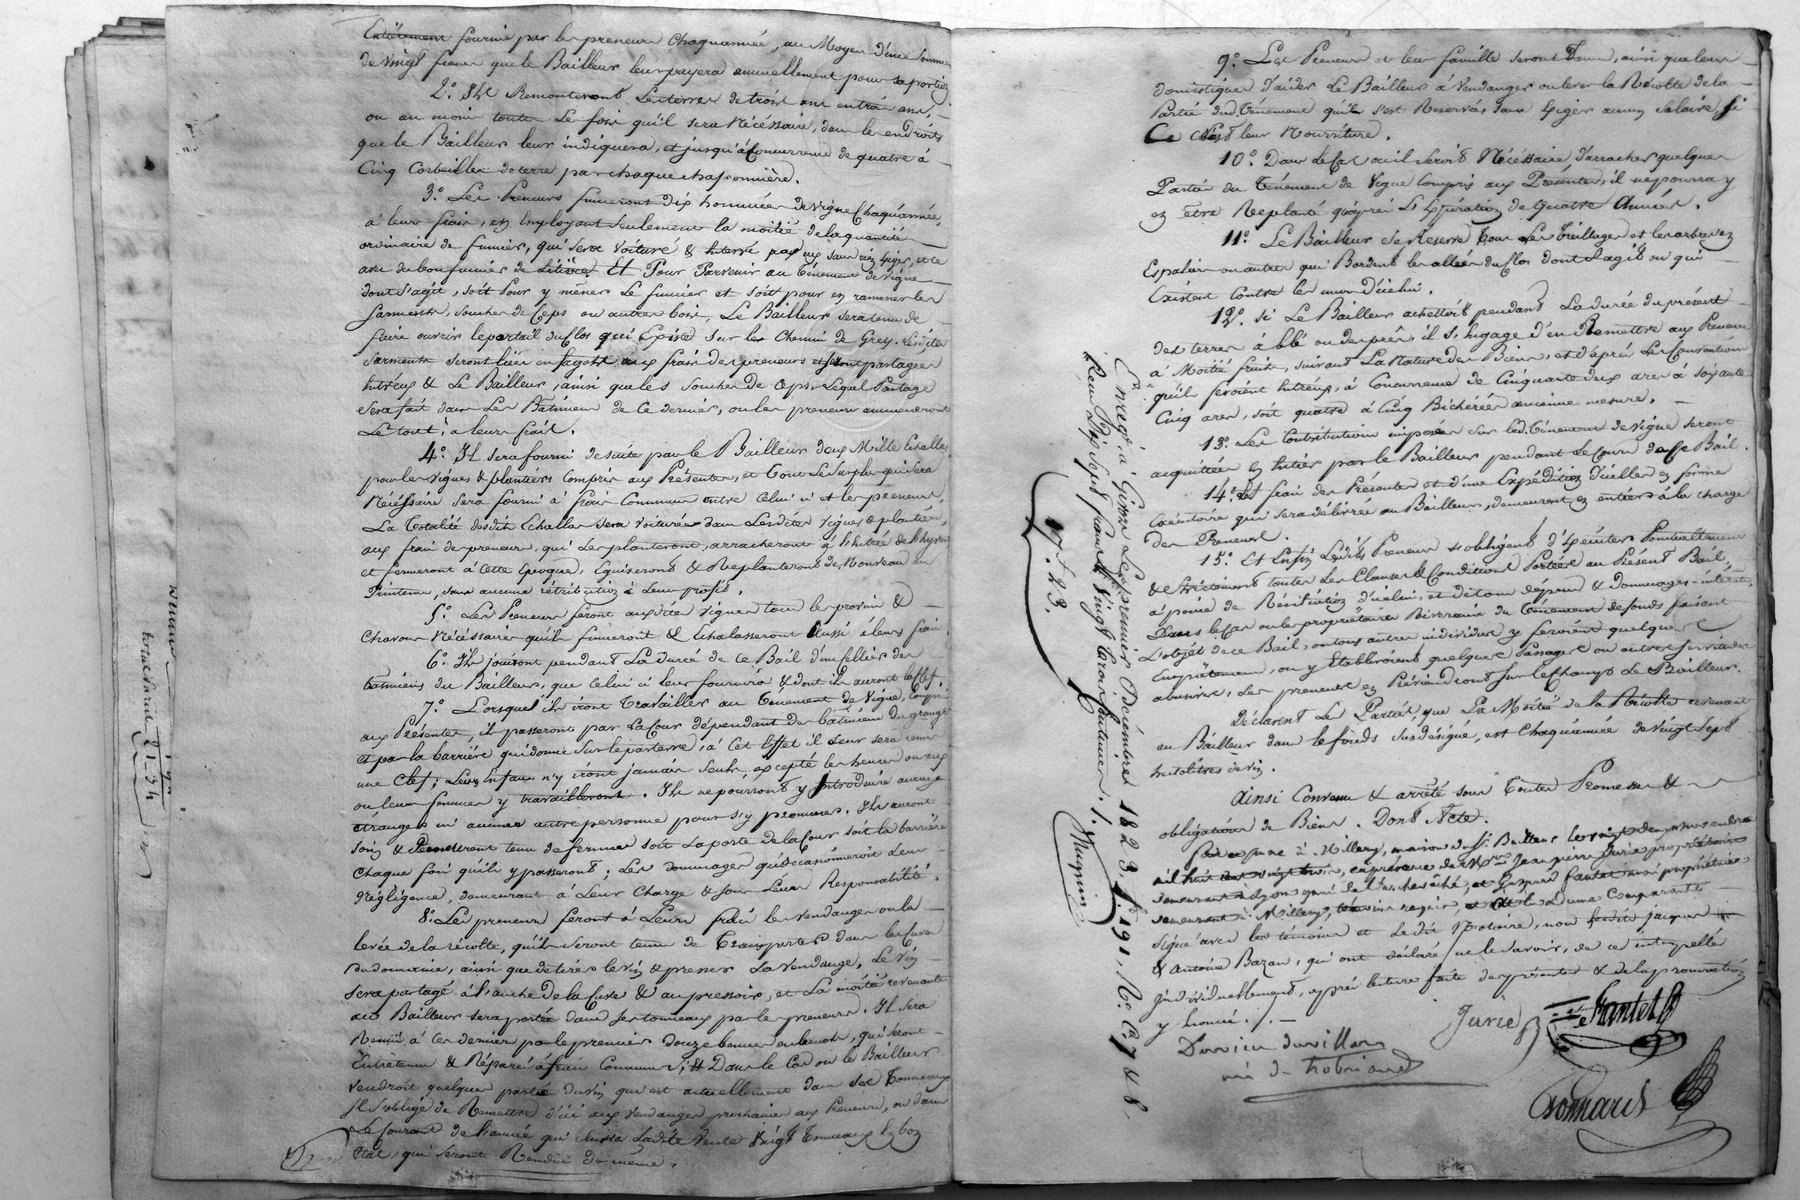 Entièrement fourni par les preneurs chaque année, au Moyen d'une somme
de vingt francs que le Bailleur leur payera annuellement pour sa portion.
2.° Ils Remonteront Les terres de trois ans en trois ans,
ou au moins toutes Les fois qu'il sera Nécéssaire, dans les endroits
que le Bailleur leur indiquera, et jusqu'à Concurrence de quatre à
Cinq Corbeilles de terre par chaque chaponnière.
3.° Les Preneurs fumeront dix hommées de vigne Chaqu'année,
à leurs frais, en Employant seulement la moitié de la quantité
ordinaire de fumier, qui sera Voituré & Enterré par eux sans rien Exiger, et ce
avec de bon fumier de Litière. Et Pour Parvenir au Ténement de vigne
dont s'agit, soit Pour y mêner Le fumier et soit pour en ramener les
sarments, souches de Ceps ou autres bois, Le Bailleur sera tenu de
faire ouvrir le portail du Clos qui Existe sur les Chemin de Grey. Lesdites
Sarments seront liés en fagots aux frais des preneurs et seront partagés
Entr'eux & Le Bailleur, ainsi que les souches de Ceps. Lequel Partage
sera fait dans Les Bâtimens de Ce dernier, ou les preneurs ammeneront
Le tout, à leurs frais.
4.° Il sera fourni de suite par le Bailleur deux Mille Echallas
pour les vignes & plantiers Compris aux Présentes, et tout Le surplus qui sera
Nécéssaire sera fourni à frais Communs entre Celui ci et les preneurs,
La Totalité desdits Echallas sera voiturée dans Lesdites vignes & plantiers,
aux frais des preneurs, qui Les planteront, arracheront à l'Entrée de l'hyver
et fermeront à Cette époque, Eguiseront & Replanteront de Nouveau au
Printems, sans aucune rétribution à leur profit.
5.° Les Preneurs feront auxdites vignes tous les provins &
Chavous Nécéssaires qu'ils fumeront & Echalasseront aussi à leurs frais.
6.° Ils jouiront pendant La durée de Ce Bail d'un sellier des
bâtimens du Bailleur, que Celui ci leur fournira & dont ils auront la clef.
7.° Lorsqu'ils iront Travailler au Ténement de Vigne, Compris
aux Présentes, ils passeront par La Cour dépendant des bâtimens du granger
et par la barrière qui donne sur le parterre; à Cet Effet il Leur sera remis
une Clef; Leurs Enfans n'y iront jamais seuls, excepté les heures ou eux
ou leurs femmes y travailleront. Ils ne pourront y Introduire aucuns
étrangers ni aucunes autre personne pour s'y promener. Ils auront
soin & Demeureront tenu de fermer soit La porte de la Cour soit la barrière
Chaque fois qu'ils y passeront; Les dommages qu'occasionneroit Leur
Négligence, demeurant à Leur Charge & sous Leur Responsabilité.
8.° Les preneurs feront à Leurs frais les vendanges ou la
levée de la récolte, qu'ils seront tenu de Transporter dans les Cuves
du domaine, ainsi que de tirer le vin & presser La vendange. Le vin
sera partagé à l'anche de la Cuve & au pressoir, et La moitié revenante
au Bailleur sera portée dans ses tonneaux par les preneurs. Il sera
Remis à Ces derniers par le premier douze bennes ou benots, qui seront
Entretenu & Réparé à frais Communs; et Dans le Cas ou le Bailleur
vendroit quelques parties du vin qui est actuellement dans ses Tonneaux
il s'oblige de Remettre d'ici aux vendanges prochaines aux Preneurs, ou dans
Le Courant de l'année qui suivra Ladite vente vingt Tonneaux En bon
état, qui seront Rendu de même.
9.° Les Preneurs et leur famille seront Tenus, ainsi que leurs
domestiques d'aider Le Bailleur à vendanger ou lever La Récolte de la
Partie dud. Ténement qu'il s'est Reservée, sans Exiger aucun salaire si
Ce n'est leur Nourriture.
10.° Dans Le Cas ou il seroit Nécéssaire d'arracher quelques
Parties du Ténement de Vigne Compris aux Présentes, il ne pourra y
en être Replanté qu'après L'Expiration de quatre Années.
11.° Le Bailleur se Reserve Tous Les Treillages et les arbres en
Espalier ou autres qui Bordent les allées du Clos dont s'agit ou qui
Existent Contre les murs d'icelui.
12.° si Le Bailleur achettoit pendant La durée du présent
des terres à blé ou des prés, il s'Engage d'en Remettre aux Preneurs
à Moitié fruits, suivant La Nature des Biens, et d'après Les Conventions
qu'ils feroient Entr'eux, à Concurrence de Cinquante deux ares à soixante
Cinq ares, soit quatre à Cinq Bichérées ancienne mesure.
13.° Les Contributions imposées sur led. Ténement de vigne seront
acquittées En Entier par le Bailleur pendant Le Cours de Ce Bail.
14.° Les frais des Présentes et d'une Expédition d'icelles en forme
Exécutoire qui sera délivrée au Bailleur, demeurent en entiers à la charge
des Preneurs.
15.° Et Enfin Lesdits Preneurs s'obligent d'éxécuter Ponctuellement
& strictement toutes Les Clauses & Conditions Portées au Présent Bail,
à peine de Résiliation d'icelui, et de tous dépens & dommages-intérêts.
Dans le Cas ou les propriétaires Riverains du Ténement de fonds faisant
L'objet de ce Bail, ou tous autres individus y feroient quelques
Empiètemens, ou y Etabliroient quelques Passages ou autres servitudes
abusives, Les preneurs en Préviendront sur le Champ Le Bailleur.
Déclarent Les Parties que La Moitié de la Récolte revenant
au Bailleur dans le fonds susdésigné, est Chaqu'année de vingt sept
hectolitres de vin.
Ainsi Convenu & arrêté sous Toutes Promesses &
obligations de Biens. Dont Acte.
fait et passé à Millery, maison dud. S.r Bailleur
mil huit cent vingt trois, en présence de Mr. Jean pierre Jurie propriétaire
demeurant à Lyon et propriétaire
demeurant à Millery, témoins requis,
signé avec les témoins et Ledit Notaire, non lesdits jacques
& Antoine Bazan, qui ont déclaré ne le savoir, de ce interpellés
individuellement, après lecture faite des présentes & de la prononciation
y énoncée./.
Jurie Fantet
Dervieu duvillars
née de trobriand
Enreg.é à Givors Le premier Décembre 1823 f.° 91, R.o C. 7 & 8.
Reçu Dix sept francs Vingt trois Centimes. /. Mugnier
17. 23.